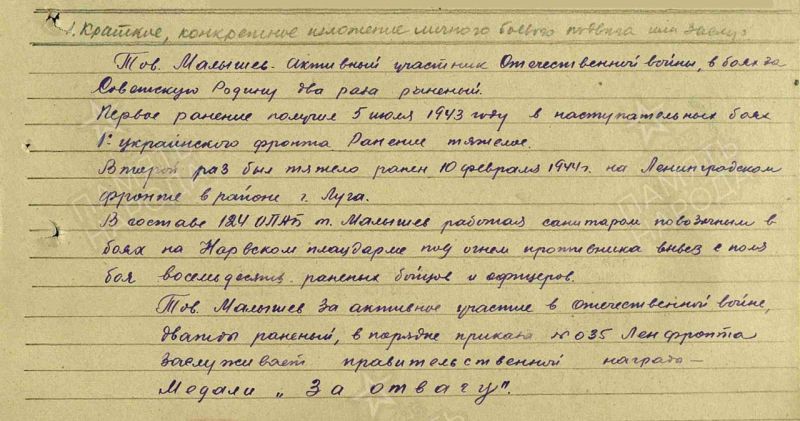 1. Краткое, конкретное изложение личного боевого подвига или заслуг
Тов. Малышев - активный участник Отечественной войны, в боях за
Советскую Родину два раза раненый.
Первое ранение получил 5 июля 1943 году в наступательных боях
1го украинского фронта Ранение тяжелое.
Второй раз был тяжело ранен 10 февраля 1944 г. на Ленинградском
фронте в районе г. Луга.
В составе 124 ОПАБ т. Малышев работая санитаром повозочным в
боях на Нарвском плацдарме под огнем противника вывез с поля
боя восемьдесять раненых бойцов и офицеров.
Тов. Малышев за активное участие в отечественной войне,
дважды раненый, в порядке приказа № 035 Ленфронта
заслуживает правительственной награды —
Медали „За отвагу".